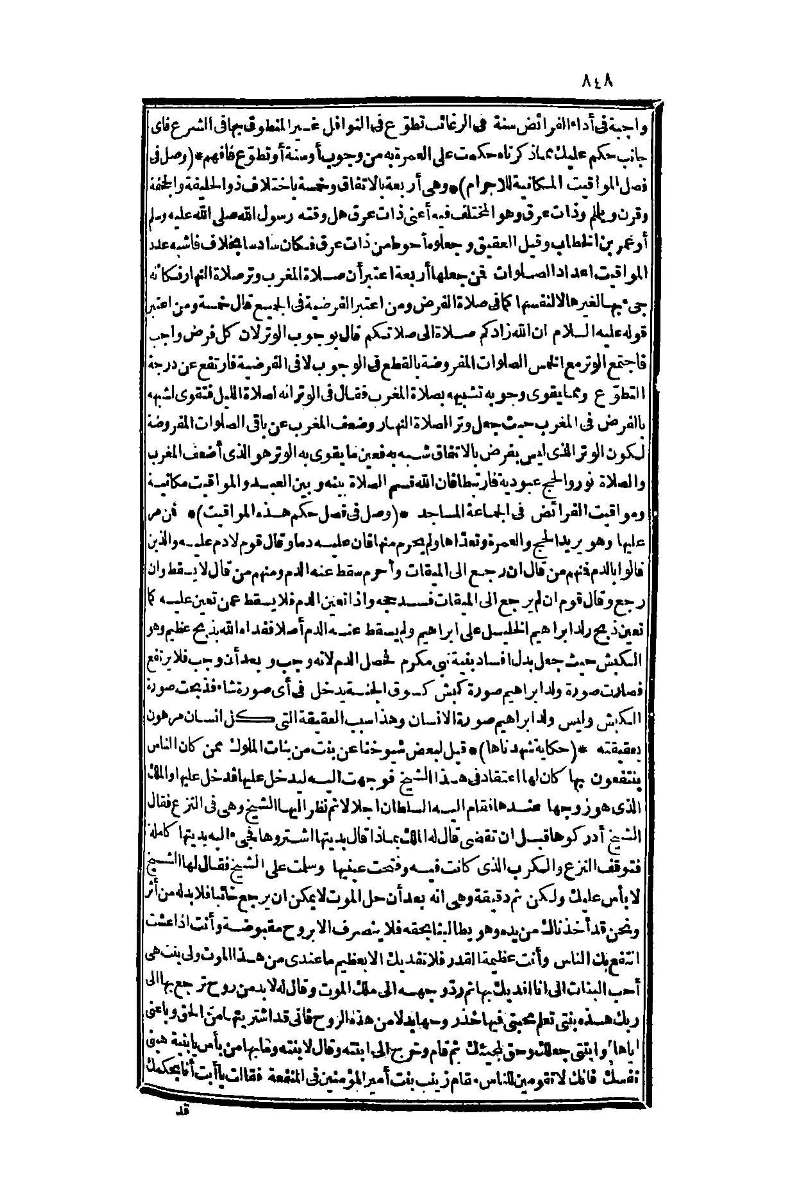 ٨٤٨
واجبة فى أداء الفرائض سنة فى الرغائب تطوّع فى النوافل غير المنطوق بها فى الشرع فاى
جانب حكم عليك مماذكرناه حكمت على العمرة به من وجوب أوسنة أو تطوّع فافهم *(وصل فى
فصل المواقيت المكانية للاحرام)* وهى أربعة بالاتفاق وخمسة باختلاف ذو الحليفة والجحفة
وقرن ويلملم وذات عرق وهو المختلف فيه أعنى ذات عرق هل وقته رسول الله صلى الله عليه وسلم
أوعمر بن الخطاب وقيل العقيق وجعلوه أحوط من ذات عرق فكان سادسا بخلاف فاشبه عدد
المواقيت اعداد الصلوات فمن جعلها أربعة اعتبر أن صلاة المغرب وتر صلاة النهار فكأنه
جىء بها لغيرها لا لنفسها كما فى صلاة الفرض ومن اعتبر الفرضية فى الجميع قال خمسة ومن اعتبر
قوله عليه السلام ان الله زادكم صلاة الى صلاتكم قال بوجوب الوتر لان كل فرض واجب
فاجتمع الوتر مع الخمس الصلوات المفروضة بالقطع فى الوجوب لا فى الفرضية فارتفع عن درجة
التطوّع ومما يقوى وجوبه تشبيهه بصلاة المغرب فقال فى الوتر انه لصلاة الليل فتقوى لشبهه
بالفرض فى المغرب حيث جعل وتر الصلاة النهار وضعف المغرب عن باقى الصلوات المفروضة
ليكون الوتر الذى ليس بفرض بالاتفاق شبه به فعين ما يقوى به الوتر هو الذى أضعف المغرب
والصلاة نور والحج عبودية فارتبطا فان الله قسم الصلاة بينه وبين العبد والمواقيت مكانية
ومواقيت الفرائض فى الجماعة المساجد *(وصل فى فصل حكم هذه المواقيت)* فمن مر
عليها وهو يريد الحج والعمرة وتعدّاها ولم يحرم منها فان عليه دما وقال قوم لا دم عليه والذين
قالوا بالدم فمنهم من قال ان رجع الى الميقات وأحرم سقط عنه الدم ومنهم من قال لا يسقط وان
رجع وقال قوم ان لم يرجع الى الميقات فسد حجه واذا تعين الدم فلا يسقط عمن تعين عليه كما
تعين ذبح ولد ابراهيم الخليل على ابراهيم ولم يسقط عنه الدم أصلا ففداه الله بذبح عظيم وهو
الكبش حيث جعل بدل افساد بنية نبى مكرم فحصل الدم لانه وجب وبعد أن وجب فلا يرتفع
فصارت صورة ولد ابراهيم صورة كبش كسوق الجنة يدخل فى أى صورة شاء فذبحت صورة
الكبش ولبس ولد ابراهيم صورة الانسان وهذا سبب العقيقة التى كل انسان مرهون
بعقيقته *(حكاية شهدناها)* قيل لبعض شيوخنا عن بنت من بنات الملوك ممن كان الناس
ينتفعون بها كان لها اعتقاد فى هذا الشيخ فوجهت اليه ليدخل عليها فدخل عليها والملك
الذى هو زوجها عندها فقام اليه السلطان اجلالا ثم نظر اليها الشيخ وهى فى النزع فقال
الشيخ أدركوها قبل ان تقضى قال له الملك بماذا قال بديتها اشتروها فجىء اليه بديتها كاملة
فتوقف النزع والكرب الذى كانت فيه وفتحت عينيها وسلمت على الشيخ فقال لها الشيخ
لا بأس عليك ولكن ثم دقيقة وهى انه بعد أن حل الموت لا يمكن ان يرجع خائبا فلا بد له من أثر
ونحن قد أخذناك من يده وهو يطالبنا بحقه فلا ينصرف الا بروح مقبوضة وأنت اذا عشت
انتفع بك الناس وأنت عظيمة القدر فلا نفديك الا بعظيم ما عندى من هذا الموت ولى بنت هى
أحب البنات الى انا افديك بها ثم ردّ وجهه الى ملك الموت وقال له لا بد من روح ترجع بها الى
ربك هذه بنتى تعلم محبتى فيها خذ روحها بدلا من هذه الروح فانى قد اشتريتها من الحق وباعنى
اياها وابنتى جعلك وحق لمجيئك ثم قام وخرج الى ابنته وقال لابنته وما بها من بأس يا بنية هبنى
نفسك فانك لا تقومين للناس مقام زينب بنت أمير المؤمنين فى المنفعة فقالت يا أبت أنا بحكمك
قد